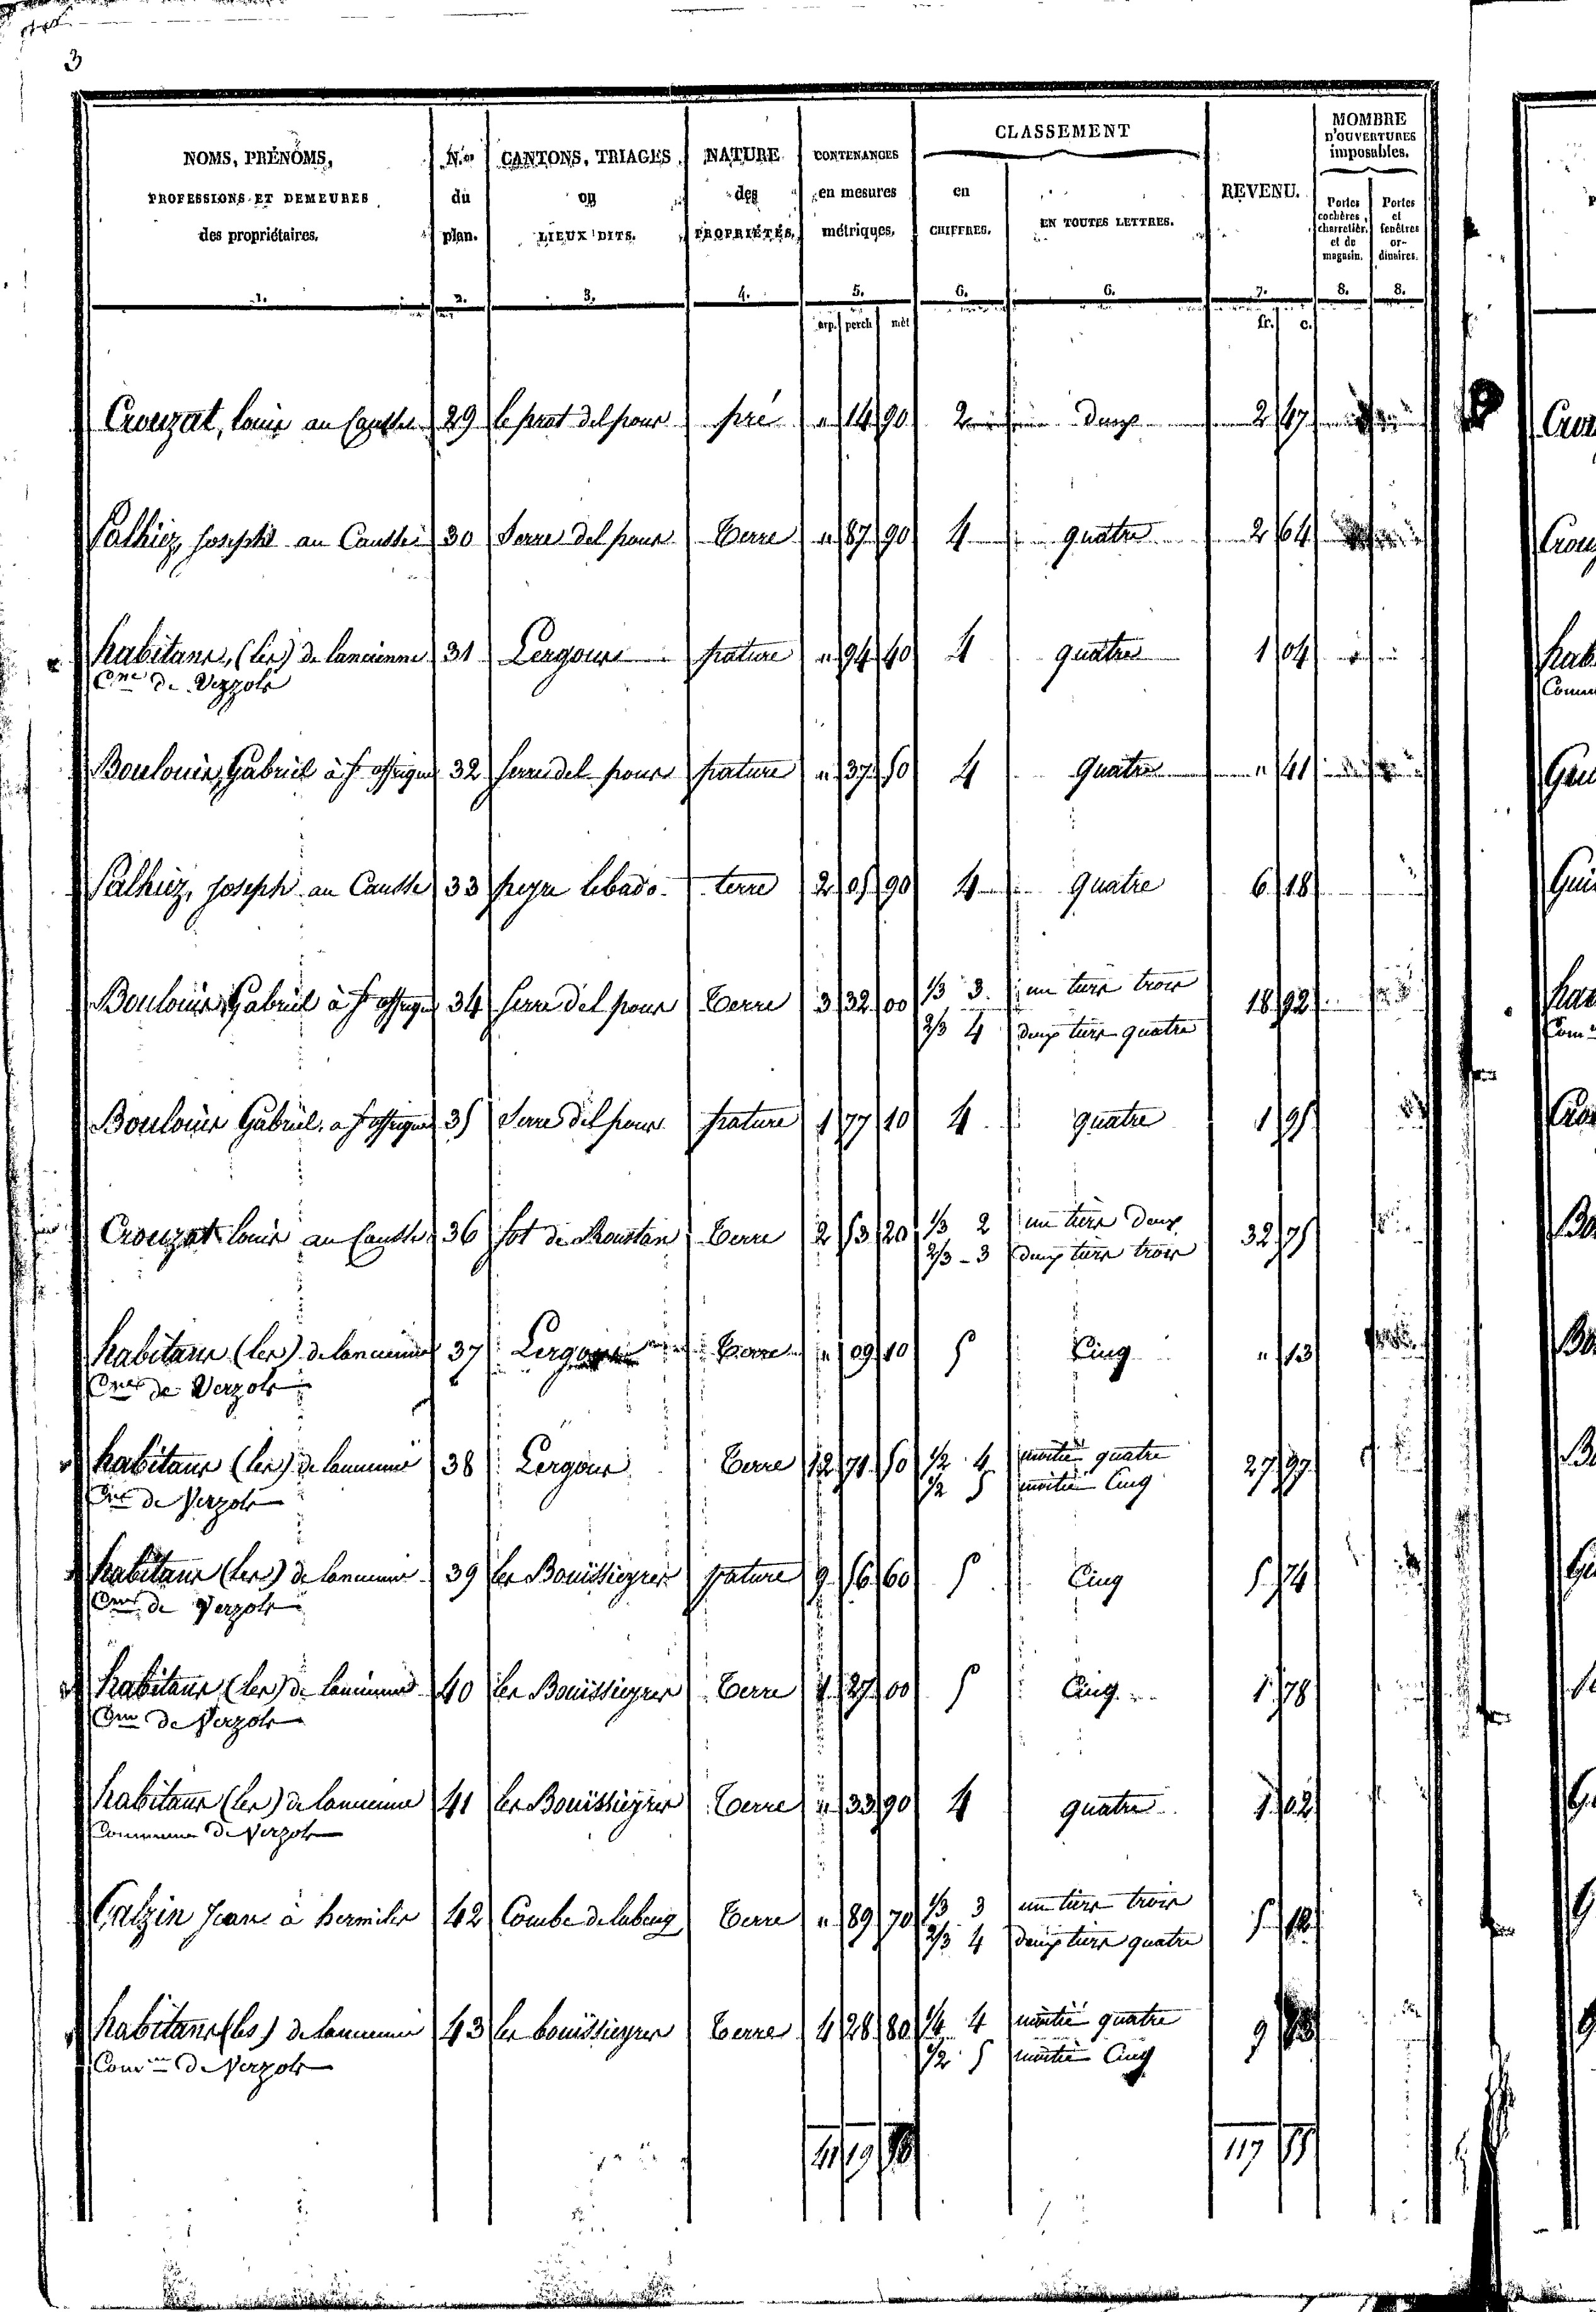 3
NOMS, PRÉNOMS, PROFESSIONS ET DEMEURES des propriétaires.
N.os du plan.
CANTONS, TRIAGES ou LIEUX DITS.
NATURE des PROPRIÉTÉS.
CONTENANCES en mesures métriques.
CLASSEMENT
en CHIFFRES.
EN TOUTES LETTRES.
REVENU.
MOMBRE D'OUVERTURES imposables.
Portes cochères, charretièr. et de magasin.
Portes et fenêtres ordinaires.
1. 2. 3. 4. 5. 6. 6. 7. 8. 8.
arp. perch mèt fr. c.
Crouzat, louis au Causse 29 le prat del pous pré " 14 90 2 deux 2 47
Palhiez, Joseph au Causse 30 Serre del pous Terre " 87 90 4 quatre 2 64
habitans, (les) de lancienne 31 Lergous pature " 94 40 4 quatre 1 04
Cne de Verzols
Boulouis, Gabriel à St affrique 32 serre del pous pature " 37 50 4 quatre " 41
Palhiez, Joseph au Causse 33 peyre lebado terre 2 05 90 4 quatre 6 18
Boulouis, Gabriel à St affrique 34 serre del pous Terre 3 32 00 1/3 3 un tiers trois 18 92
2/3 4 deux tiers quatre
Boulouis Gabriel, a St affrique 35 Serre del pous pature 1 77 10 4 quatre 1 95
Crouzat louis au Causse 36 sot de Roustan Terre 2 53 20 1/3 2 un tiers deux 32 75
2/3 - 3 deux tiers trois
habitans (les) de lancienne 37 Lergous Terre " 09 10 5 Cinq " 13
Cne de Verzols
habitans (les) de lancienne 38 Lergous Terre 12 71 50 1/2 4 moitié quatre 27 97
1/2 5 moitié Cinq
Cne de Verzols
habitans (les) de lancienne 39 les Bouïssieyres pature 9 56 60 5 Cinq 5 74
Cne de Verzols
habitans (les) de lancienne 40 les Bouissieyres Terre 1 27 00 5 Cinq 1 78
Cne de Verzols
habitans (les) de lancienne 41 les Bouïssieyres Terre " 33 90 4 quatre 1 02
Commune de Verzols
Calzin Jean à hermiles 42 Combe de Terre " 89 70 1/3 3 un tiers trois 5 12
2/3 4 deux tiers quatre
habitans (les) de lancienne 43 les bouïssieyres Terre 4 28 80 4 moitié quatre 9
1/2 5 moitié Cinq
Comne de Verzols
41 19 117 55